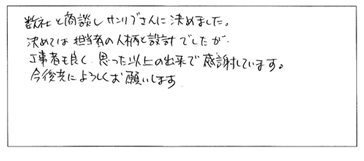 数社と商談しサンリブさんに決めました。
決めては担当者の人柄と設計でしたが
工事も良く、思った以上の出来で感謝しています。
今後共によろしくお願いします